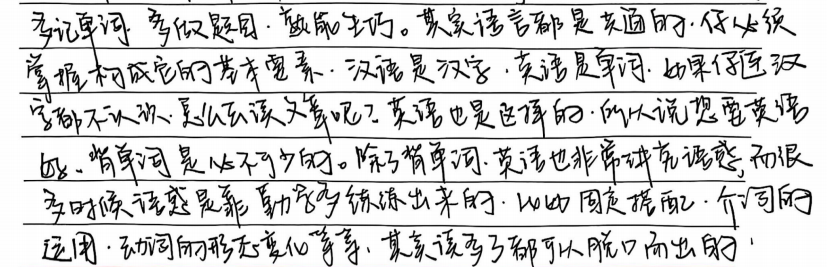 多记单词,多做题目,熟能生巧。其实语言都是共通的,你必须
掌握构成它的基本要素,汉语是汉字,英语是单词,如果你连汉
字都不认识,怎么去读文章呢?英语也是这样的,所以说想要英语
好,背单词是必不可少的。除了背单词,英语也非常讲究语感,而很
多时候语感是靠勤学多练练出来的,比如固定搭配,介词的
运用,动词的形态变化等等,其实读多了都可以脱口而出的,